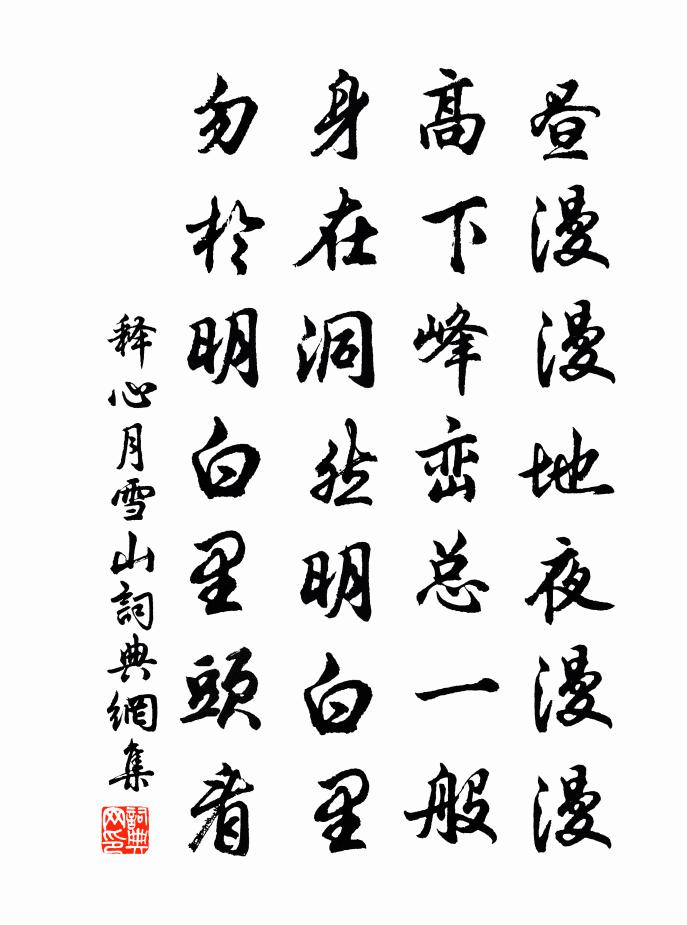 昼漫漫地夜漫漫
高下峰峦总一般
身在洞然明白里
勿於明白里頭看
释心月雪山詞典網集
詞典网印